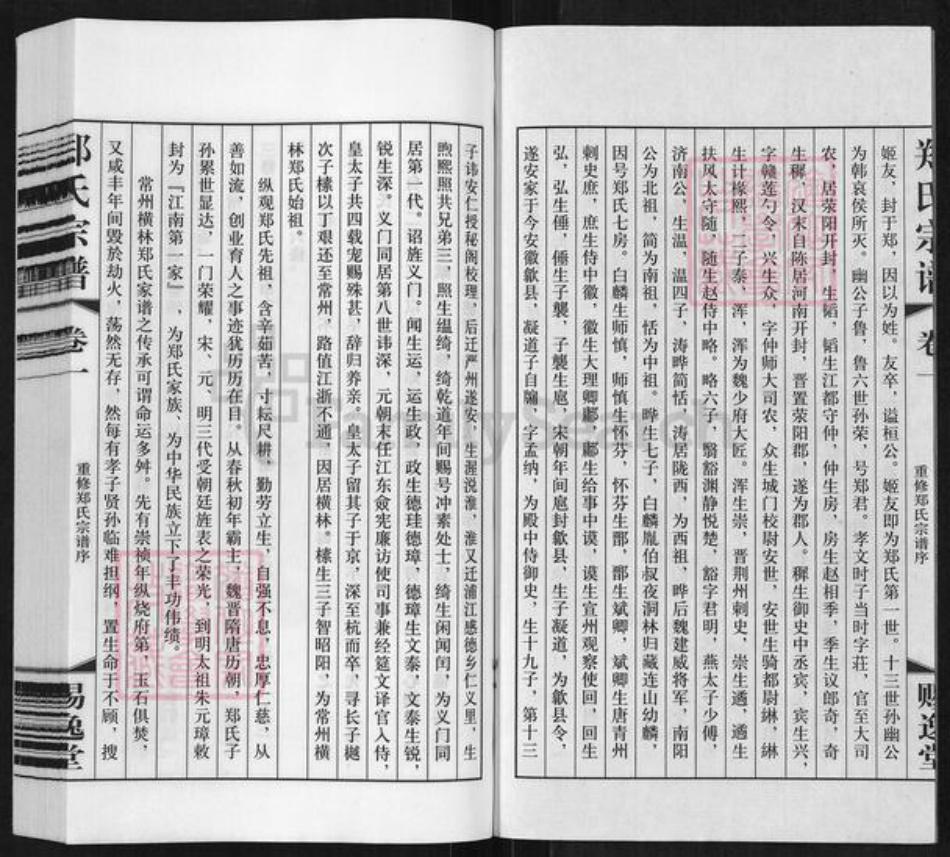 郑氏宗谱
卷一
重修郑氏宗谱序
赐逸堂
姬友，封于郑，因以为姓。友卒，谥桓公。姬友即为郑氏第一世。十三世孙幽公
为韩哀侯所灭。幽公子鲁，鲁六世孙荣，号郑君。孝文时子当时字庄，官至大司
农，居荥阳开封，生韬，韬生江都守仲，仲生房，房生赵相季，季生议郎奇，奇
生穉，汉末自陈居河南开封，晋置荥阳郡，遂为郡人。穉生御史中丞宾，宾生兴，
字赣莲勺令，兴生众，字仲师大司农，众生城门校尉安世，安世生骑都尉綝，綝
生计椽熙，二子泰，浑，浑为魏少府大匠。浑生崇，晋荆州刺史，崇生遹，遹生
扶风太守随，随生赵侍中略。略六子，翳豁渊静悦楚，豁字君明，燕太子少傅，
济南公，生温，温四子，涛晔简恬，涛居陇西，为西祖，晔后魏建威将军，南阳
公为北祖，简为南祖，恬为中祖。晔生七子，白麟胤伯叔夜洞林归藏连山幼麟，
因号郑氏七房。白麟生师慎，师慎生怀芬，怀芬生鄑，鄑生斌卿，斌卿生唐青州
刺史庶，庶生侍中徽，徽生大理卿鄘，鄘生给事中谟，谟生宣州观察使回，回生
弘，弘生倕，倕生子襲，子襲生扈，宋朝年间扈封歙县，生子凝道，为歙县令，
遂安家于今安徽歙县，凝道子自牖，字孟纳，为殿中侍御史，生十九子，第十三
子讳安仁授秘阁校理，后迁严州遂安，生渥说淮，淮又迁浦江感德乡仁义里，生
煦熙照共兄弟三，照生缊绮，绮乾道年间赐号冲素处士，绮生闲闻闰，为义门同
居第一代。诏旌义门。闻生运，运生政，政生德珪德璋，德璋生文泰，文泰生锐，
锐生深。义门同居第八世讳深，元朝末任江东佥宪廉访使司事兼经筵文译官入侍，
皇太子共四载宠赐殊甚，辞归养亲。皇太子留其子于京，深至杭而卒，寻长子樾
次子榡以丁艰还至常州，路值江浙不通，因居横林。榡生三子智昭阳，为常州横
林郑氏始祖。
纵观郑氏先祖，含辛茹苦，寸耘尺耕，勤劳立生，自强不息，忠厚仁慈，从
善如流，创业育人之事迹犹历历在目。从春秋初年霸主，魏晋隋唐历朝，郑氏子
孙累世显达，一门荣耀，宋、元、明三代受朝廷旌表之荣光，到明太祖朱元璋敕
封为『江南第一家』，为郑氏家族、为中华民族立下了丰功伟绩。
常州横林郑氏家谱之传承可谓命运多舛。先有崇祯年纵烧府第，玉石俱焚，
又咸丰年间毁於劫火，荡然无存，然每有孝子贤孙临难担纲，置生命于不顾，搜
郑氏宗谱
卷一
重修郑氏宗谱序
赐逸堂
FamilySearch